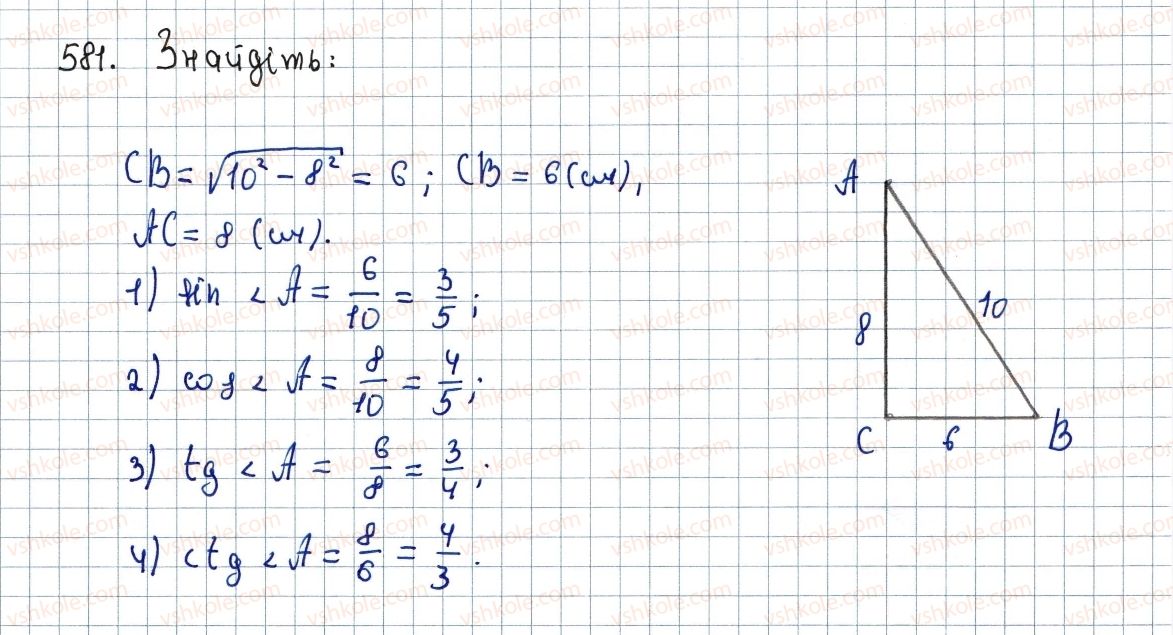 581. Знайдіть:
CB = √(10² − 8²) = 6; CB = 6 (см),
AC = 8 (см).
1) sin < A = 6/10 = 3/5;
2) cos < A = 8/10 = 4/5;
3) tg < A = 6/8 = 3/4;
4) ctg < A = 8/6 = 4/3.
A
8
10
C
6
B
vshkole.com